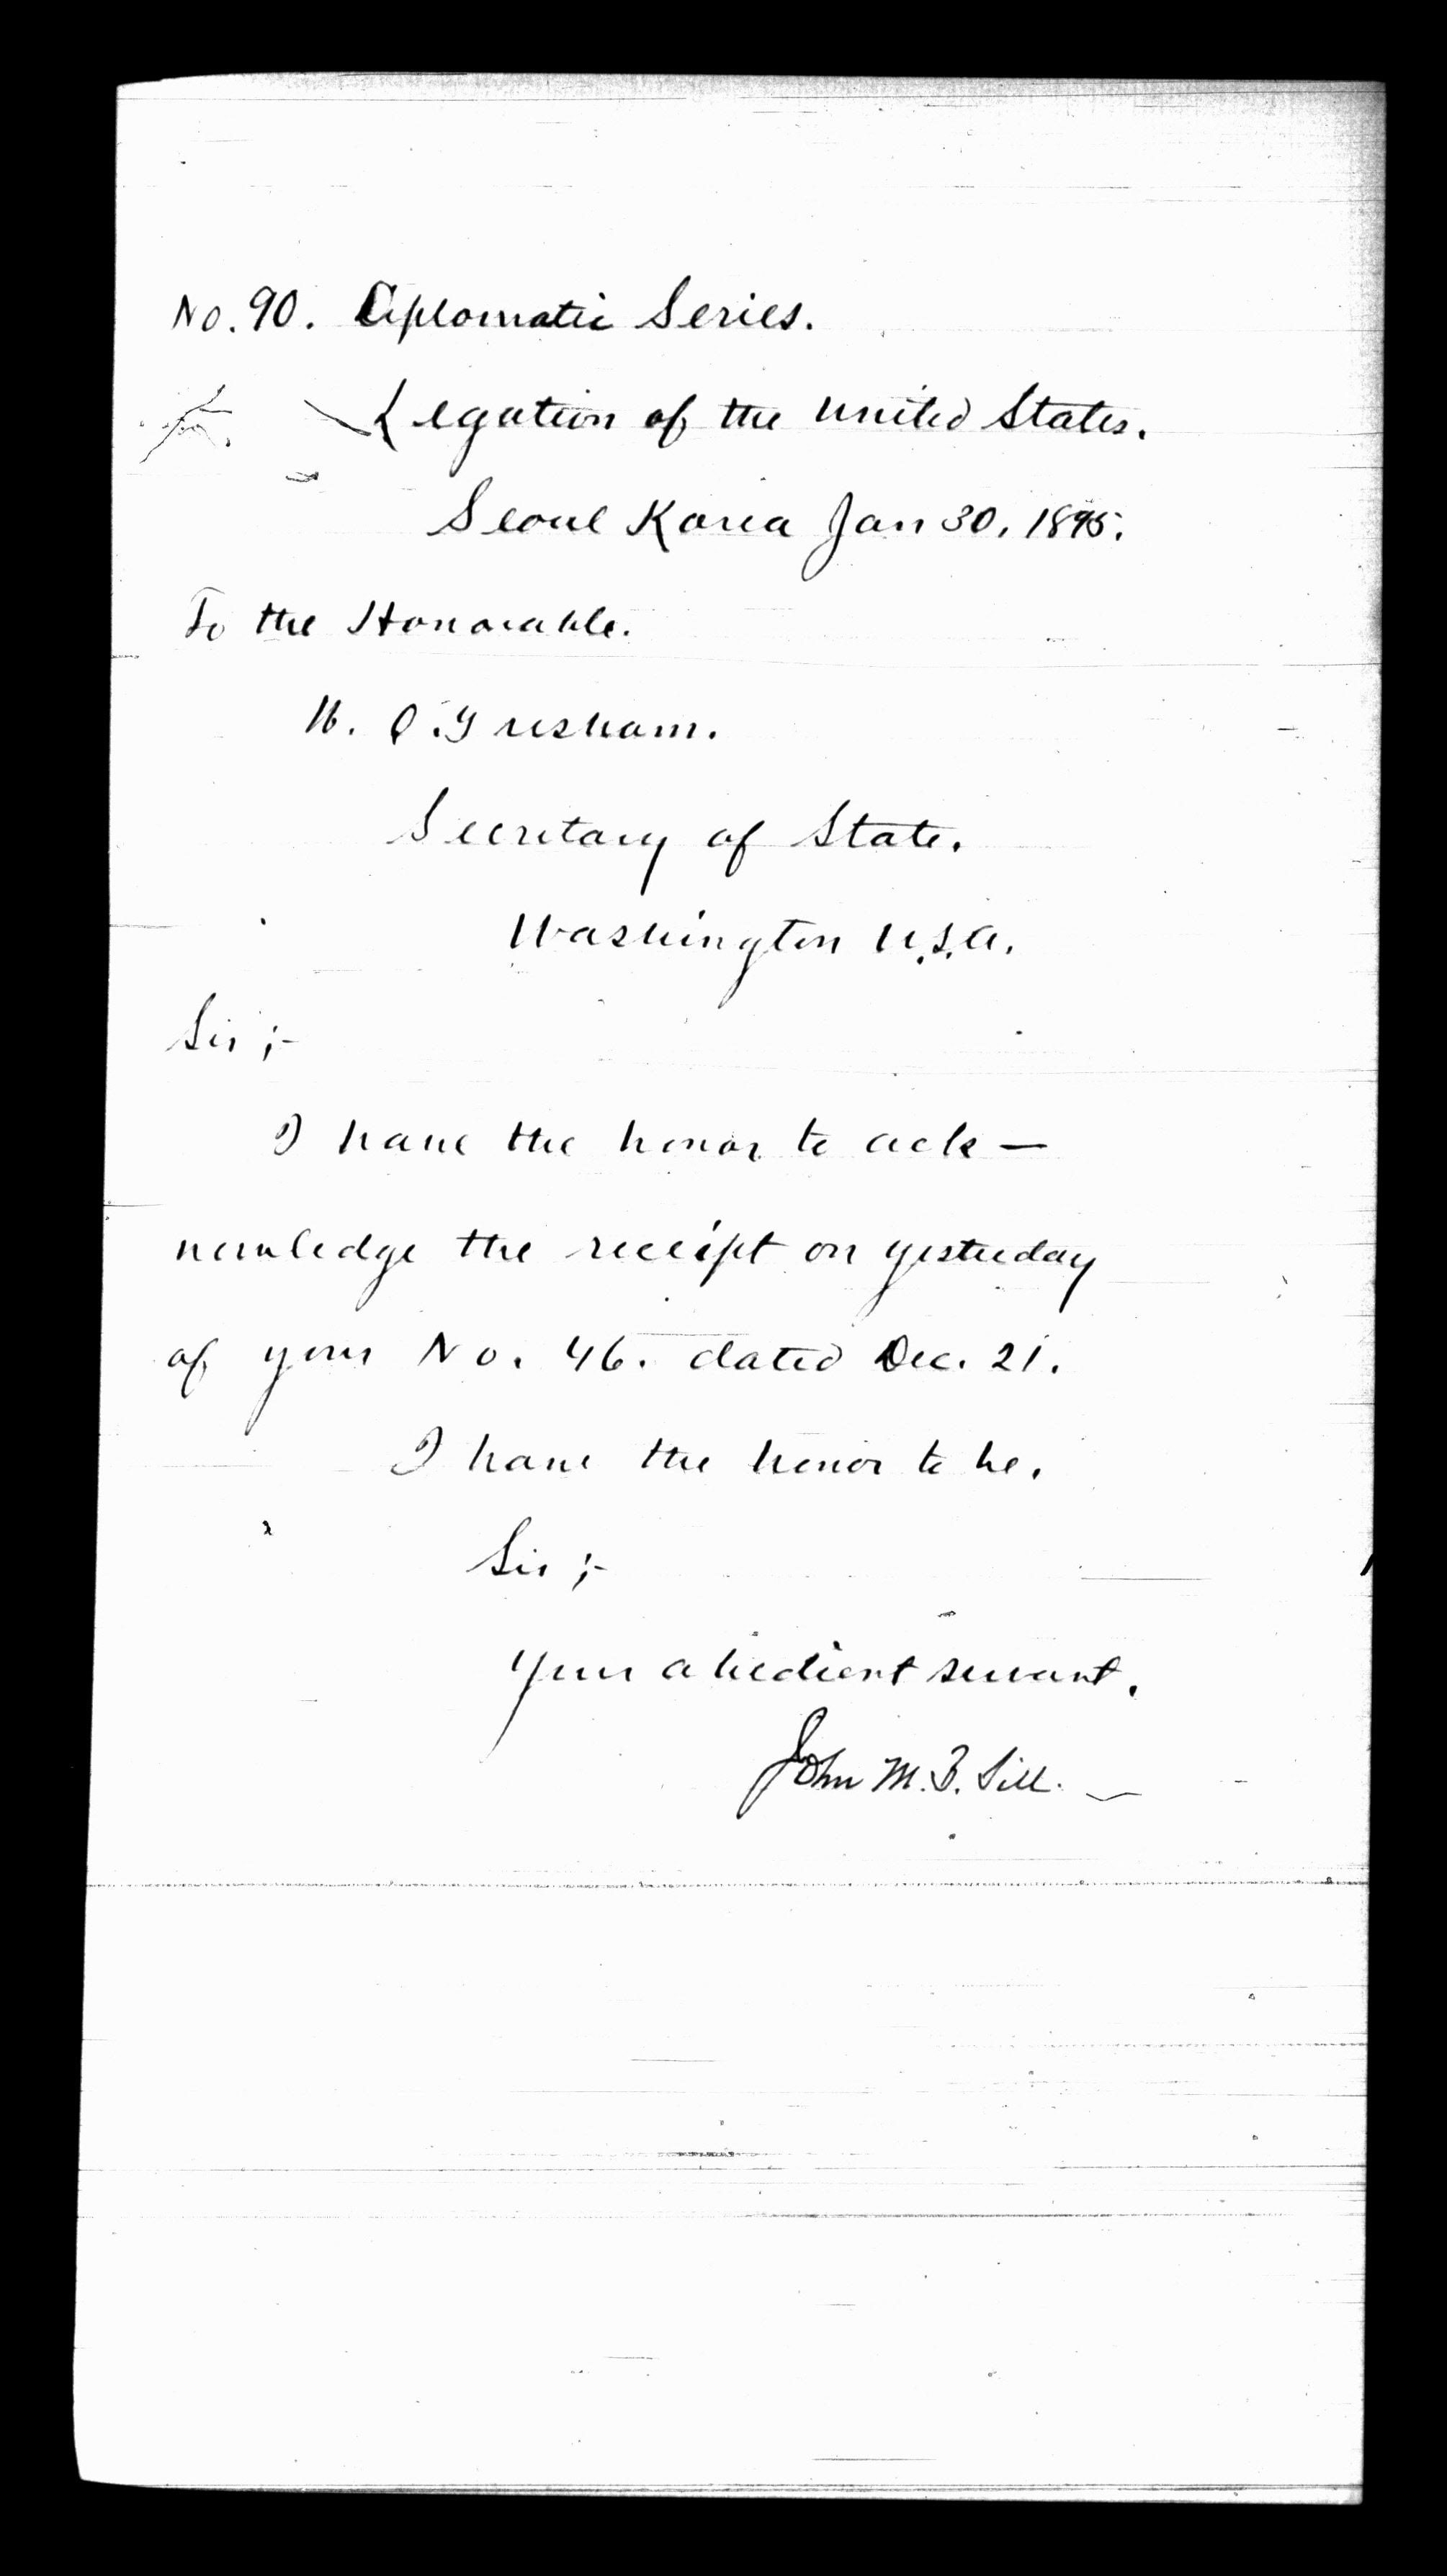 No. 90. Diplomatic Series.
Legation of the United States.
Seoul Korea Jan 30, 1895.
To the Honorable.
W. Q. Gresham.
Secretary of State.
Washington U.S.A.
Sir ;-
I have the honor to ack—
nowledge the receipt on yesterday
of your No. 46. dated Dec. 21.
I have the honor to be.
Sir ;-
Your obedient servant.
John M. B. Sill.